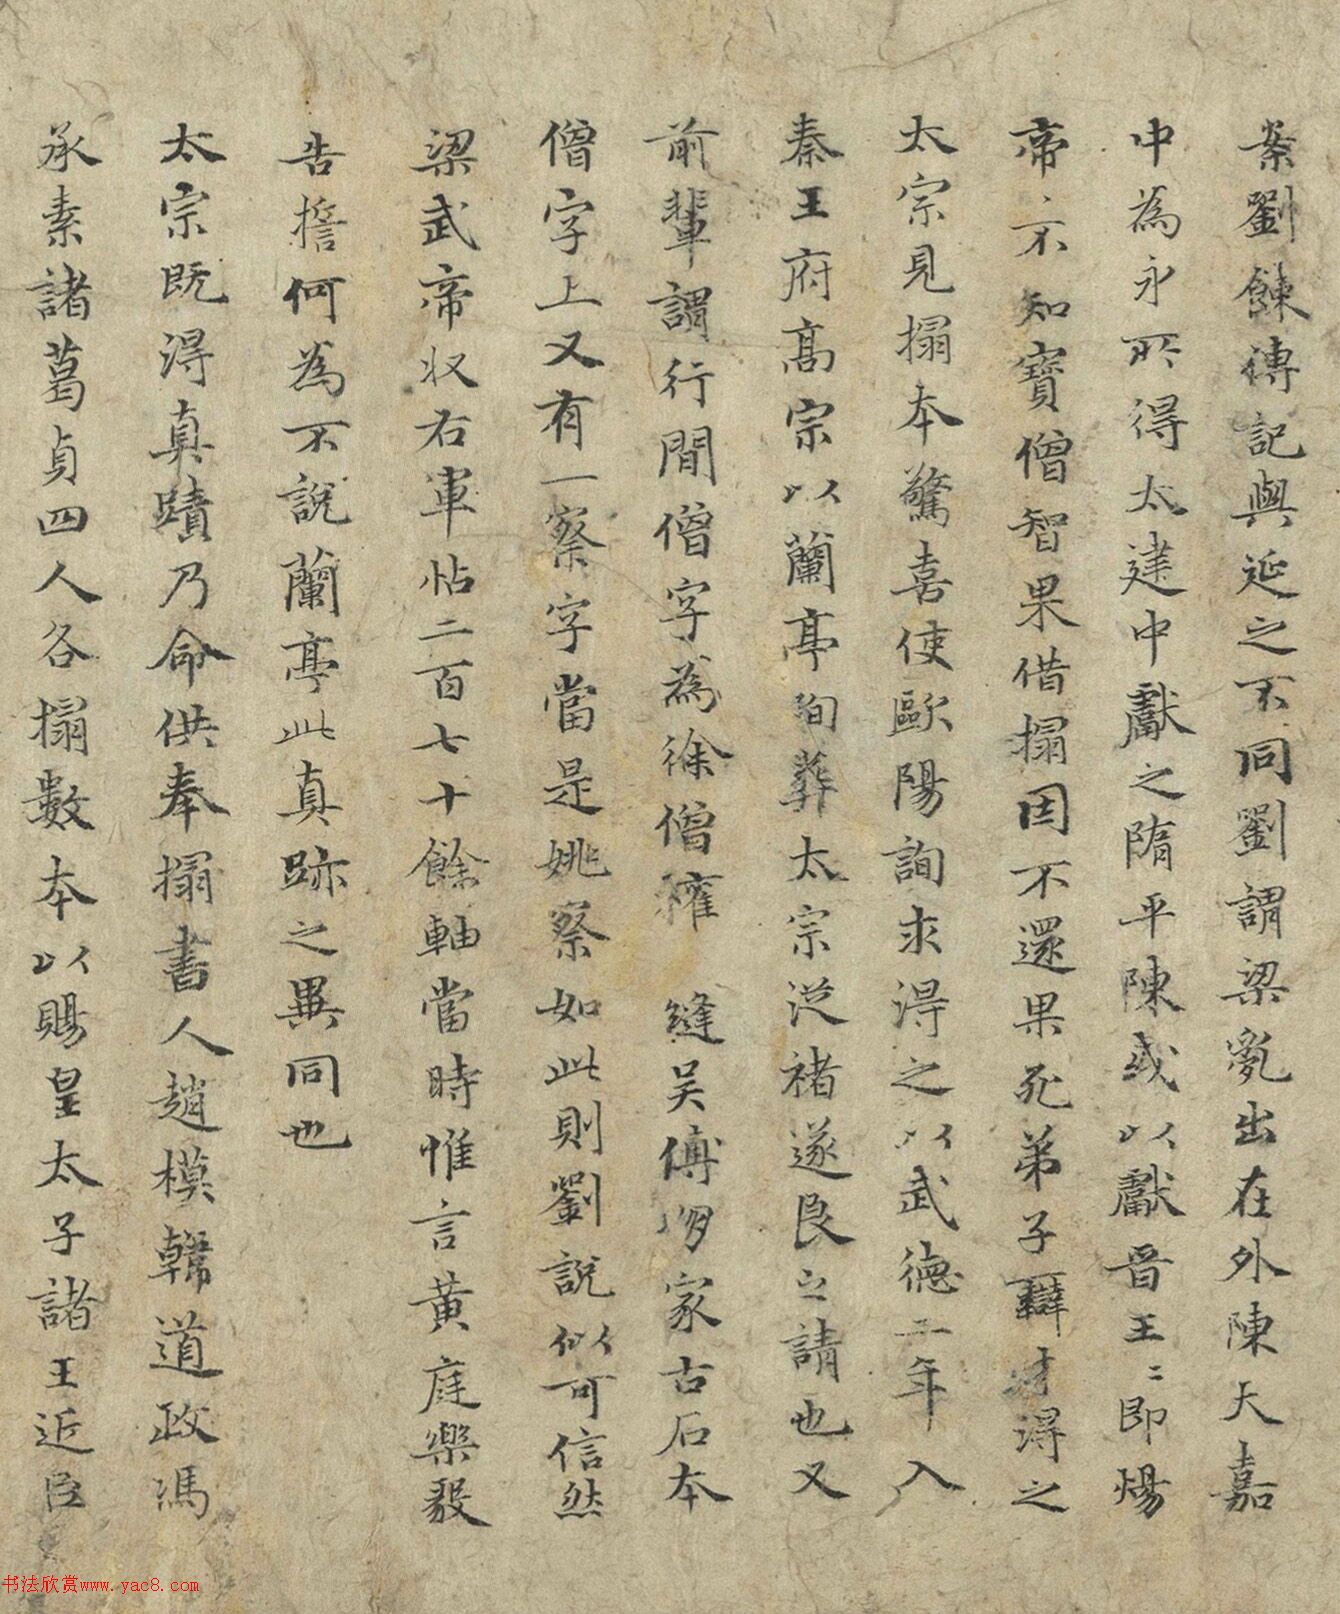 案劉餗傳記與延之不同劉謂梁亂出在外陳天嘉
中為永所得太建中獻之隋平陳或以獻晉王〻即煬
帝帝不知寶僧智果借搨因不還果死弟子辯才得之
太宗見搨本驚喜使歐陽詢求得之以武德二年入
秦王府髙宗以蘭亭殉葬太宗從褚遂良之請也又
前輩謂行間僧字為徐僧權 縫吴傅朋家古石本
僧字上又有一察字當是姚察如此則劉說似可信然
梁武帝収右軍帖二百七十餘軸當時惟言黄庭樂毅
告誓何為不說蘭亭此真跡之異同也
太宗既得真蹟乃命供奉搨書人趙模韓道政馮
承素諸葛貞四人各搨數本以賜皇太子諸王近臣
书法欣赏www.yac8.com